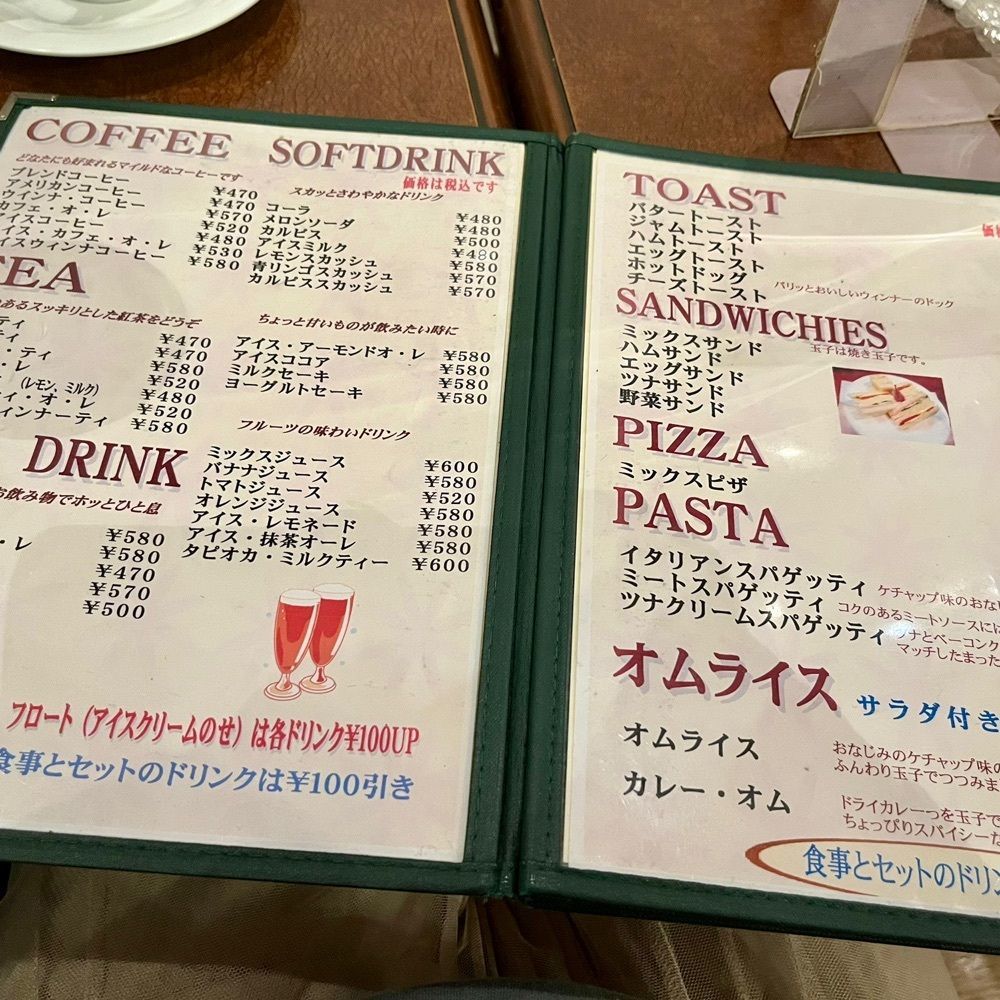 COFFEE
どなたにも好まれるマイルドなコーヒーです
ブレンドコーヒー ¥470
アメリカンコーヒー ¥470
ウィンナ・コーヒー ¥570
カフェ・オ・レ ¥520
アイスコーヒー ¥480
イス・カフェ・オ・レ ¥530
イスウィンナコーヒー ¥580
TEA
あるスッキリとした紅茶をどうぞ
ティ ¥470
ティ ¥470
・ティ ¥580
・レ ¥520
(レモン、ミルク) ¥480
ィ・オ・レ ¥520
ウィンナーティ ¥580
DRINK
お飲み物でホッとひと息
¥580
・レ ¥580
¥470
¥570
¥500
SOFTDRINK
価格は税込です
スカッとさわやかなドリンク
コーラ ¥480
メロンソーダ ¥480
カルピス ¥500
アイスミルク ¥480
レモンスカッシュ ¥580
青リンゴスカッシュ ¥570
カルピススカッシュ ¥570
ちょっと甘いものが飲みたい時に
アイス・アーモンドオ・レ ¥580
アイスココア ¥580
ミルクセーキ ¥580
ヨーグルトセーキ ¥580
フルーツの味わいドリンク
ミックスジュース ¥600
バナナジュース ¥580
トマトジュース ¥520
オレンジジュース ¥580
アイス・レモネード ¥580
アイス・抹茶オーレ ¥580
タピオカ・ミルクティー ¥600
フロート(アイスクリームのせ)は各ドリンク¥100UP
食事とセットのドリンクは¥100引き
TOAST
価
バタートースト
ジャムトースト
ハムトースト
エッグトースト
ホットドッグ パリッとおいしいウィンナーのドック
チーズトースト
SANDWICHIES
玉子は焼き玉子です。
ミックスサンド
ハムサンド
エッグサンド
ツナサンド
野菜サンド
PIZZA
ミックスピザ
PASTA
イタリアンスパゲッティ ケチャップ味のおな
ミートスパゲッティ コクのあるミートソースに
ツナクリームスパゲッティ ツナとベーコンク
マッチしたまった
オムライス サラダ付き
オムライス おなじみのケチャップ味の
ふんわり玉子でつつみま
カレー・オム ドライカレーっを玉子で
ちょっぴりスパイシーな
食事とセットのドリン